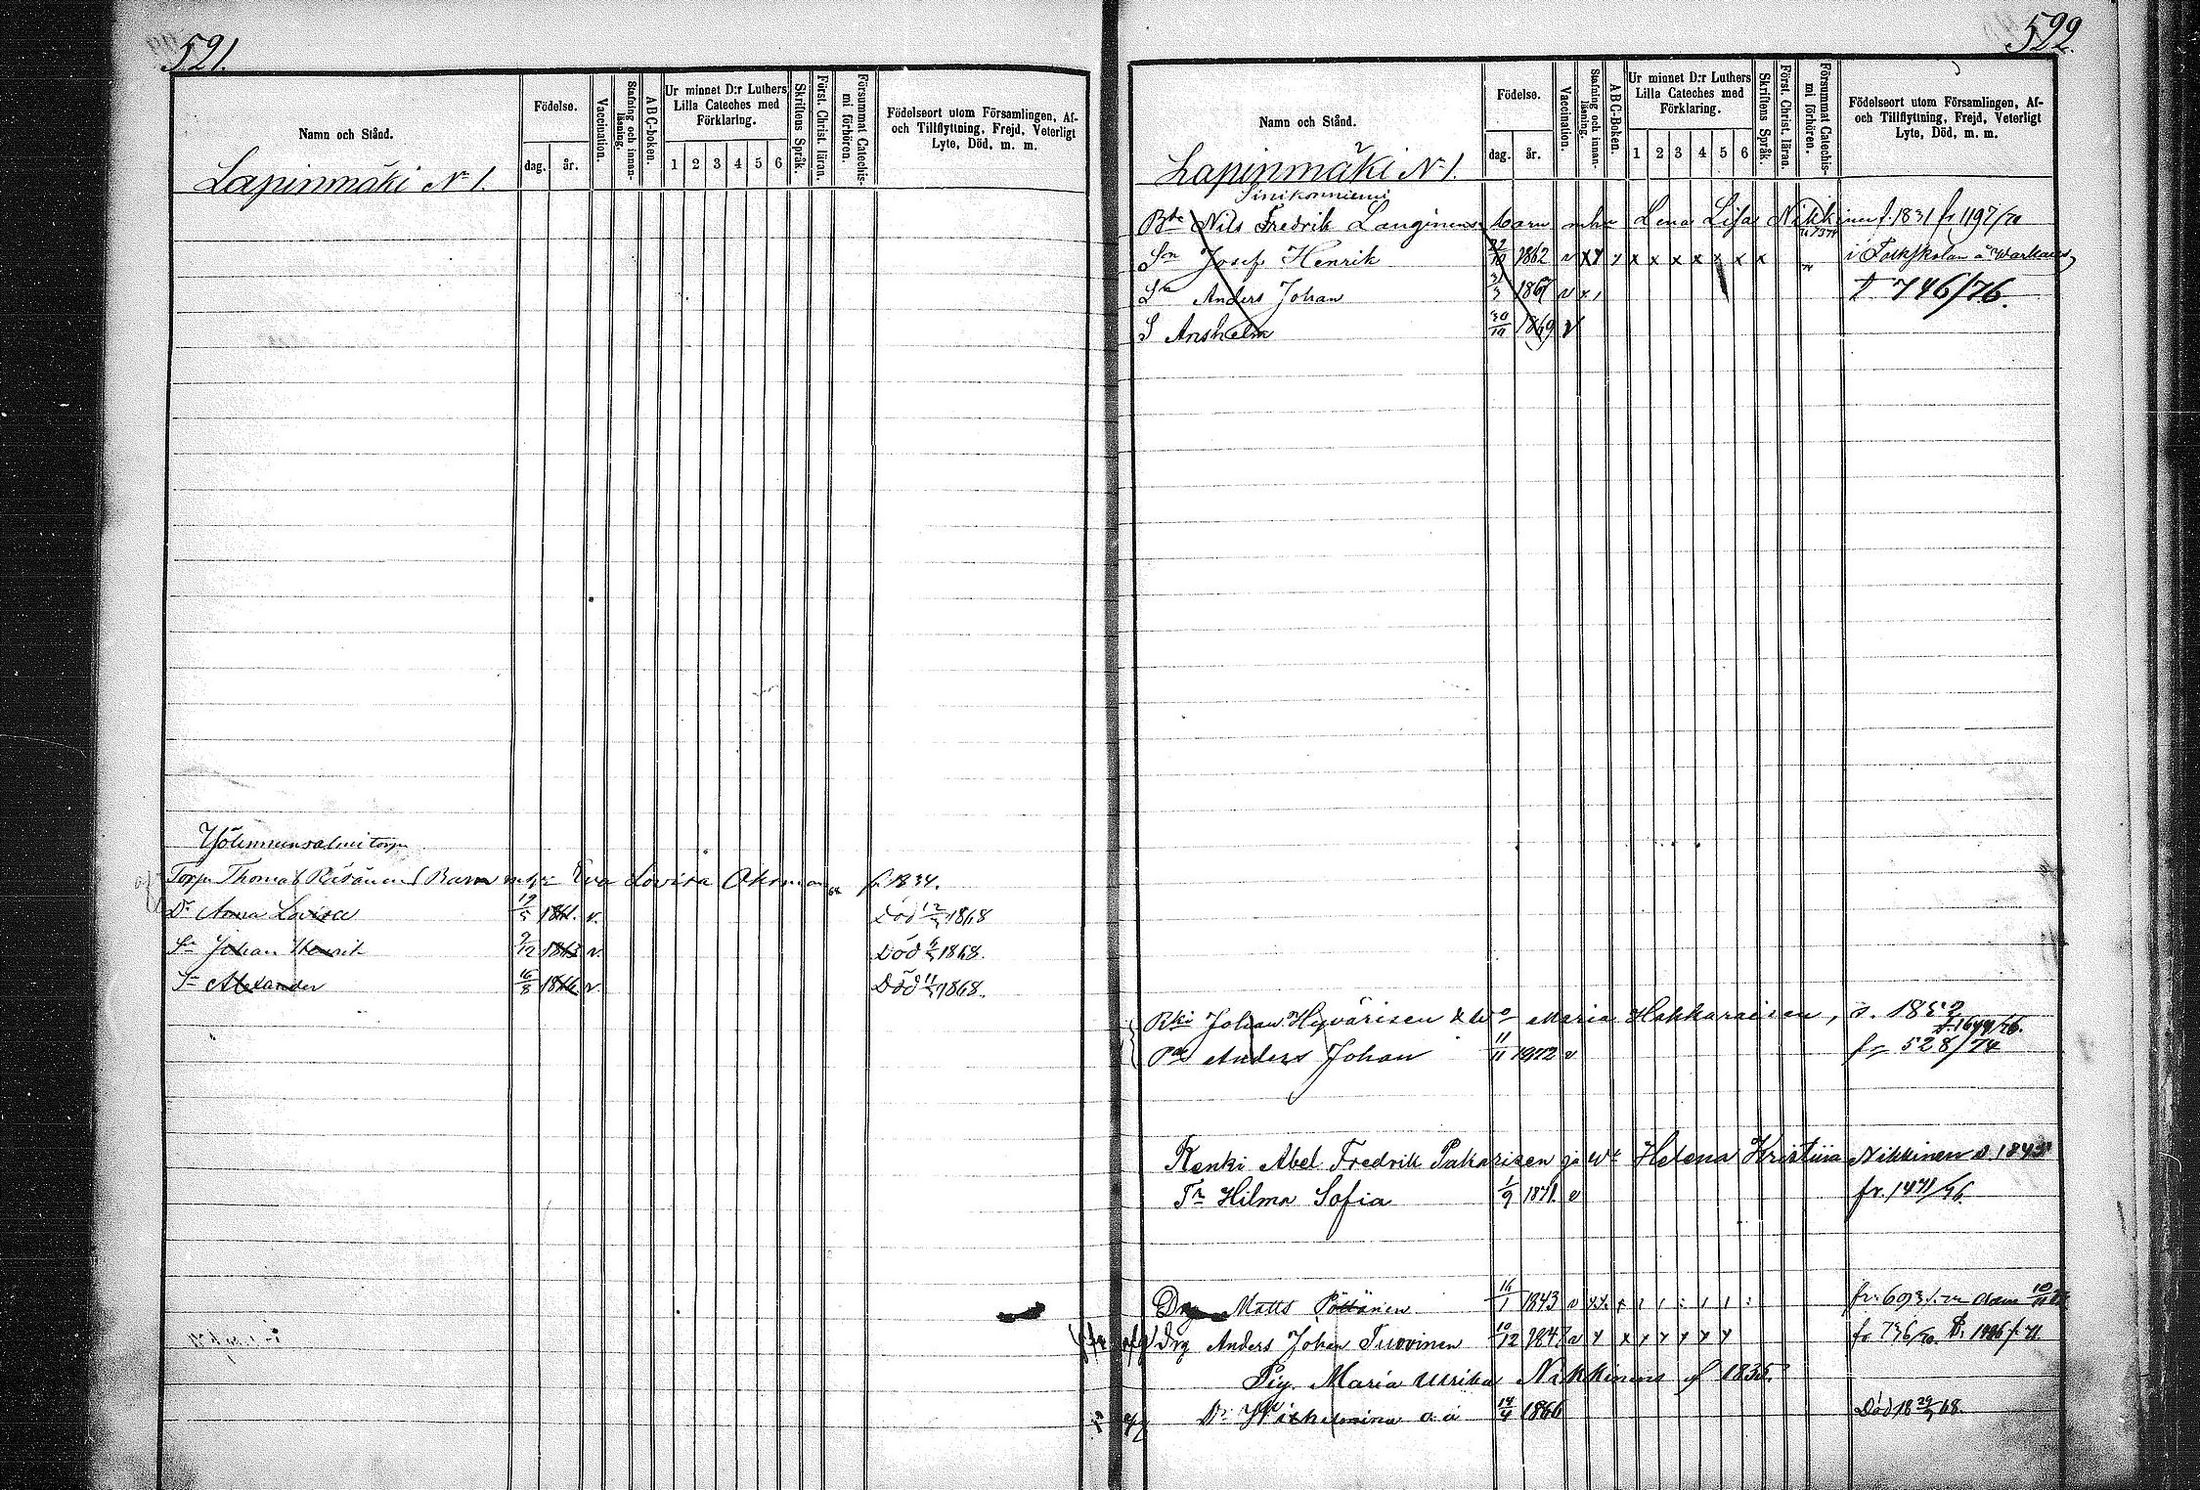 521.
Namn och Stånd.
Födelse.
dag. år.
Vaccination.
Stafning och innan-läsning.
ABC-boken.
Ur minnet D:r Luthers
Lilla Cateches med
Förklaring.
1 2 3 4 5 6
Skriftens Språk.
Först. Christ. läran.
Försummat Catechis-mi förhören.
Födelseort utom Församlingen, Af-
och Tillflyttning, Frejd, Veterligt
Lyte, Död, m. m.
Lapinmäki N 1.
Torp. Thomas Räsänens Barn m h Eva Lovisa f. 1834.
Dr Anna Lovisa 1861. v. Död 1868
Sn Johan Henrik 9/12 1863 v. Död 1868.
Sn Alexander 16/8 1866 v. Död 1868.
522.
Namn och Stånd.
Födelse.
dag. år.
Vaccination.
Stafning och innan-läsning.
ABC-Boken.
Ur minnet D:r Luthers
Lilla Cateches med
Förklaring.
1 2 3 4 5 6
Skriftens Språk.
Först. Christ. läran.
Försummat Catechis-mi förhören.
Födelseort utom Församlingen, Af-
och Tillflyttning, Frejd, Veterligt
Lyte, Död, m. m.
Lapinmäki N 1.
Sinikonniemi
Nils Fredrik Lauginens barn mhu Lena Lisa Nikkinen f. 1831 fr 1197/71
Sn Josef Henrik 22/10 1862 v x x x x x x x x i Folkskolan å Warkaus
Sn Anders Johan 3 1867 v x 746/76.
S Anshelm 30/10 1869 v
Rki Johan Hyvärisen & Wo Maria Hakkaraisen, s. 1852
f. 1649/76.
Pka Anders Johan 11/11 1872 v fr 528/74
Renki Abel Fredrik Pakarisen ja Wo Helena Kristiina Nikkinen s. 1845
Tr Hilma Sofia 1/9 1871 v fr. 1471/76.
Drg Matts Pöllänen 16/1 1843 v fr. 693
Drg Anders Johan Tuovinen 10/12 1847 v fr 736/70
Pig. Maria Ulrika Nikkinens f 1835
Dr Wilhelmina o. ä 14/4 1866 Död 18 29/3 68.